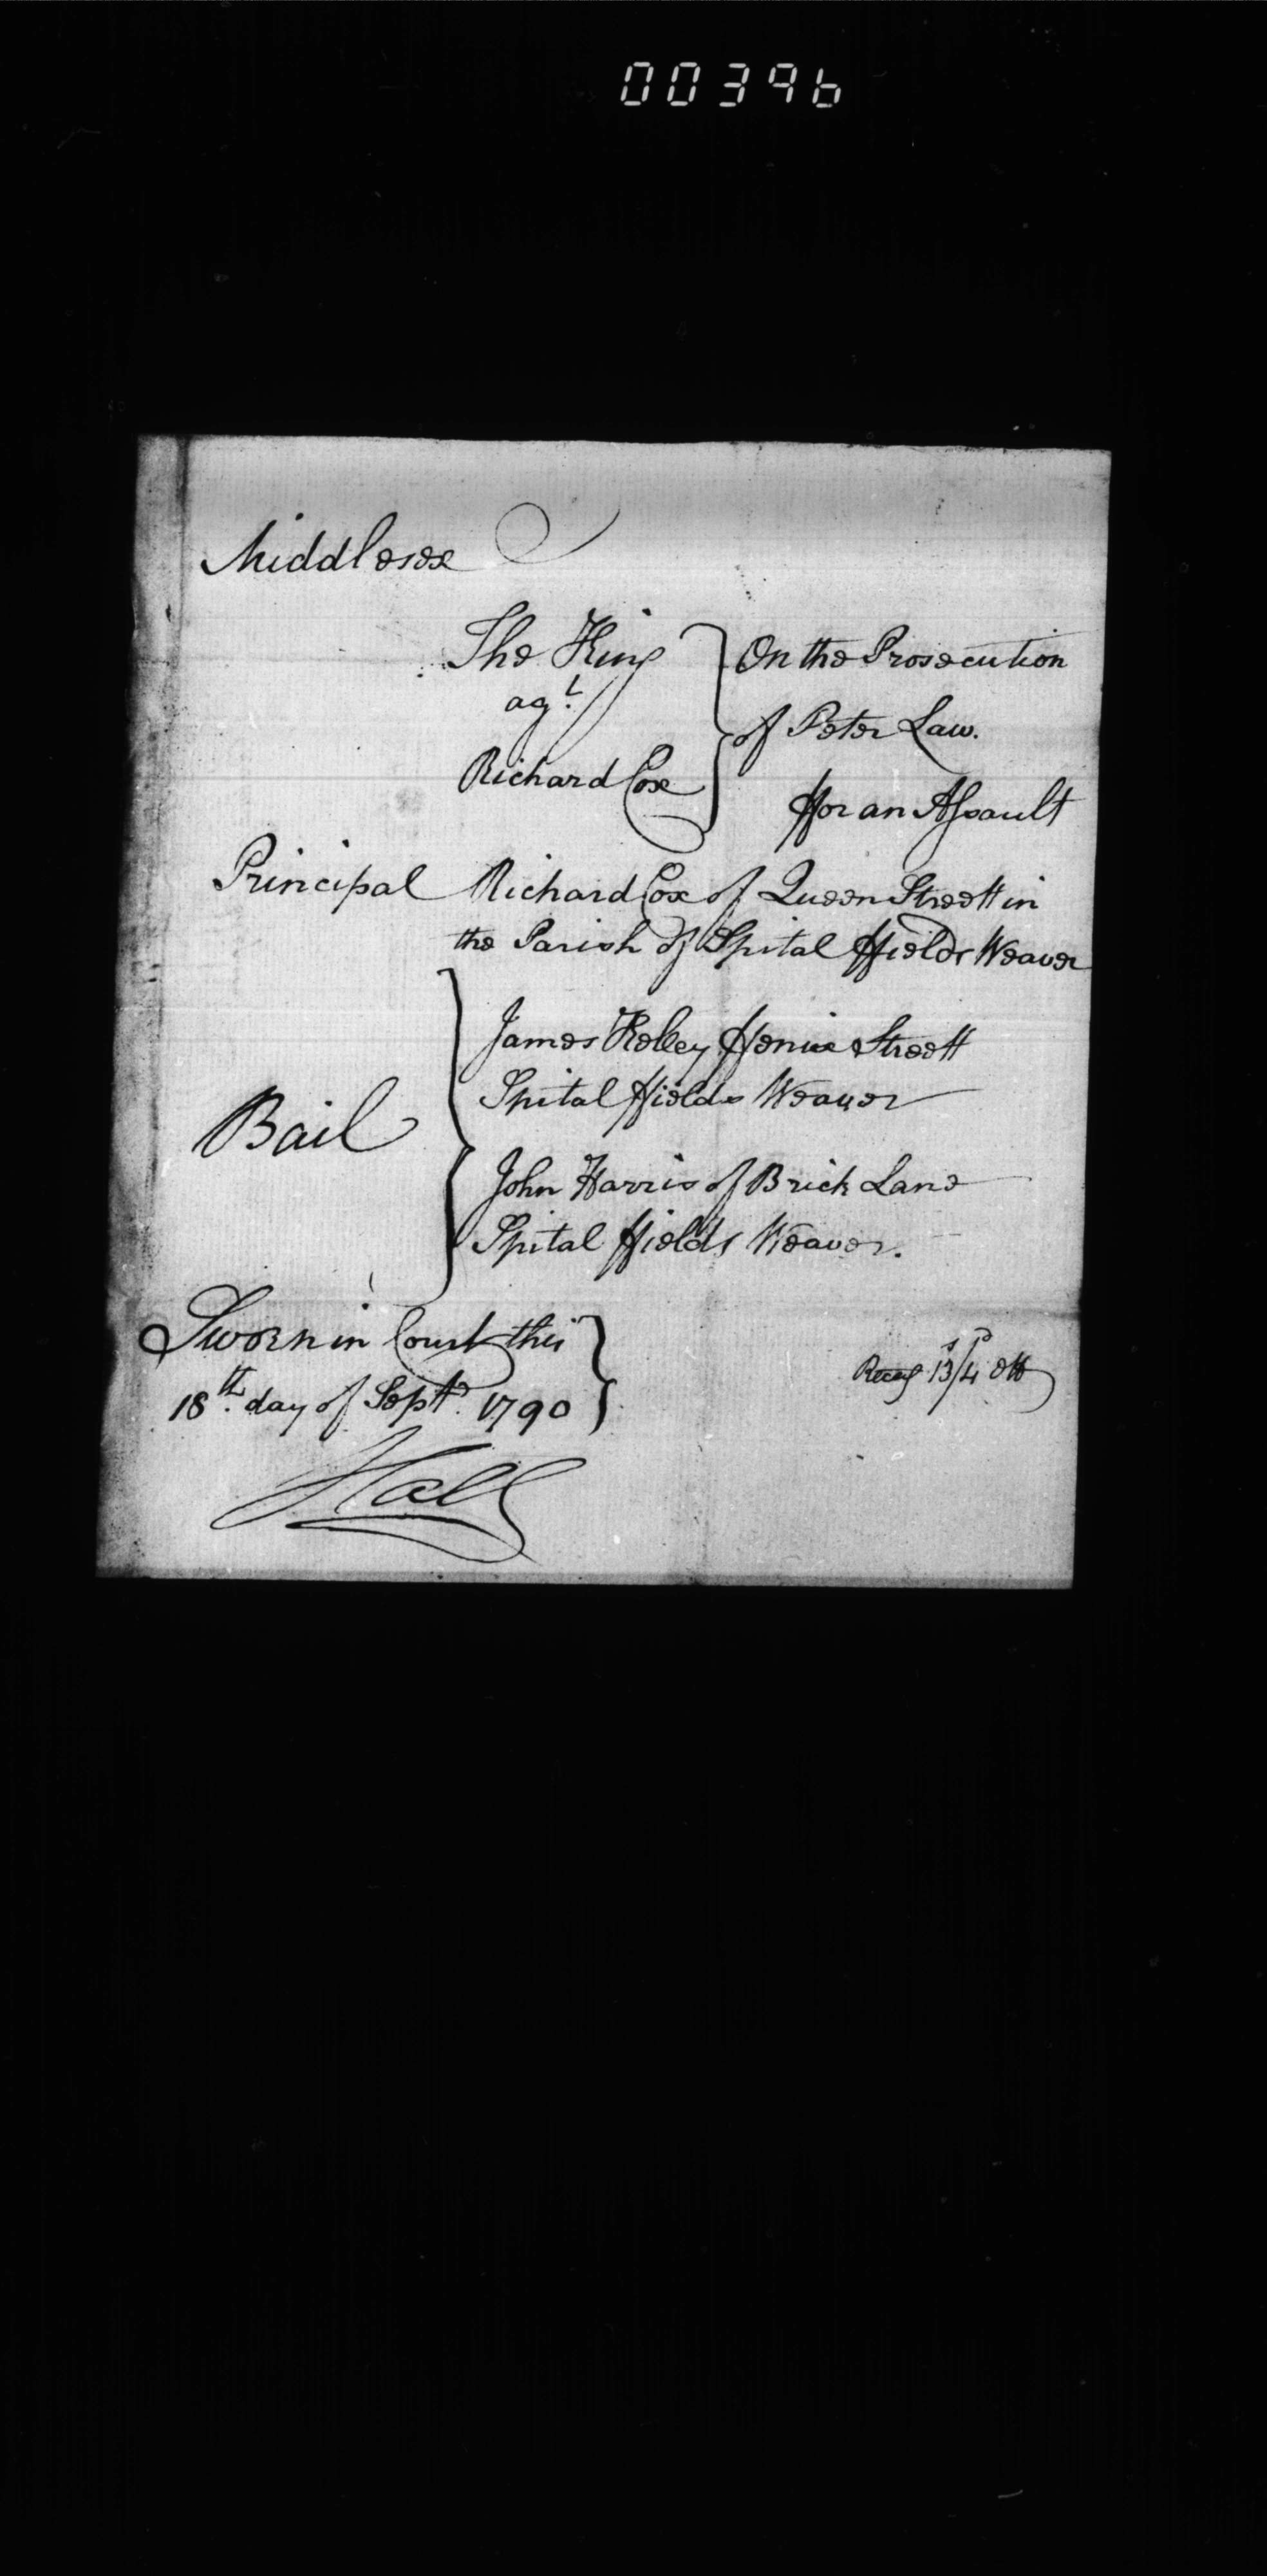 00396
Middlesex
The King
agt.
Richard Cox
On the Prosecution
of Peter Law.
ffor an Assault
Principal Richard Cox of Queen Streett in
the Parish of Spital ffields Weaver
Bail
James Kelley Streett
Spital ffields Weaver
John Harris of Brick Lane
Spital ffields Weaver.
Sworn in Court this
18th. day of Septr. 1790
Hall
13/4